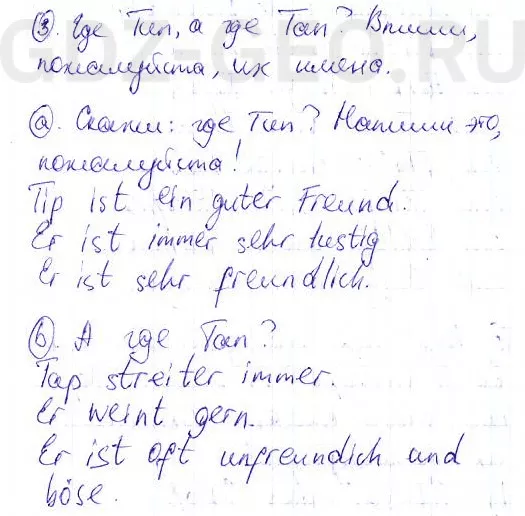 GDZ-GEO.RU
③. Где Тип, а где Тап? Впиши,
пожалуйста, их имена.
ⓐ. Скажи: где Тип? Напиши это,
пожалуйста!
Tip ist ein guter Freund.
Er ist immer sehr lustig
Er ist sehr freundlich.
ⓑ. А где Тап?
Tap streiter immer.
Er weint gern.
Er ist oft unfreundich und
böse.